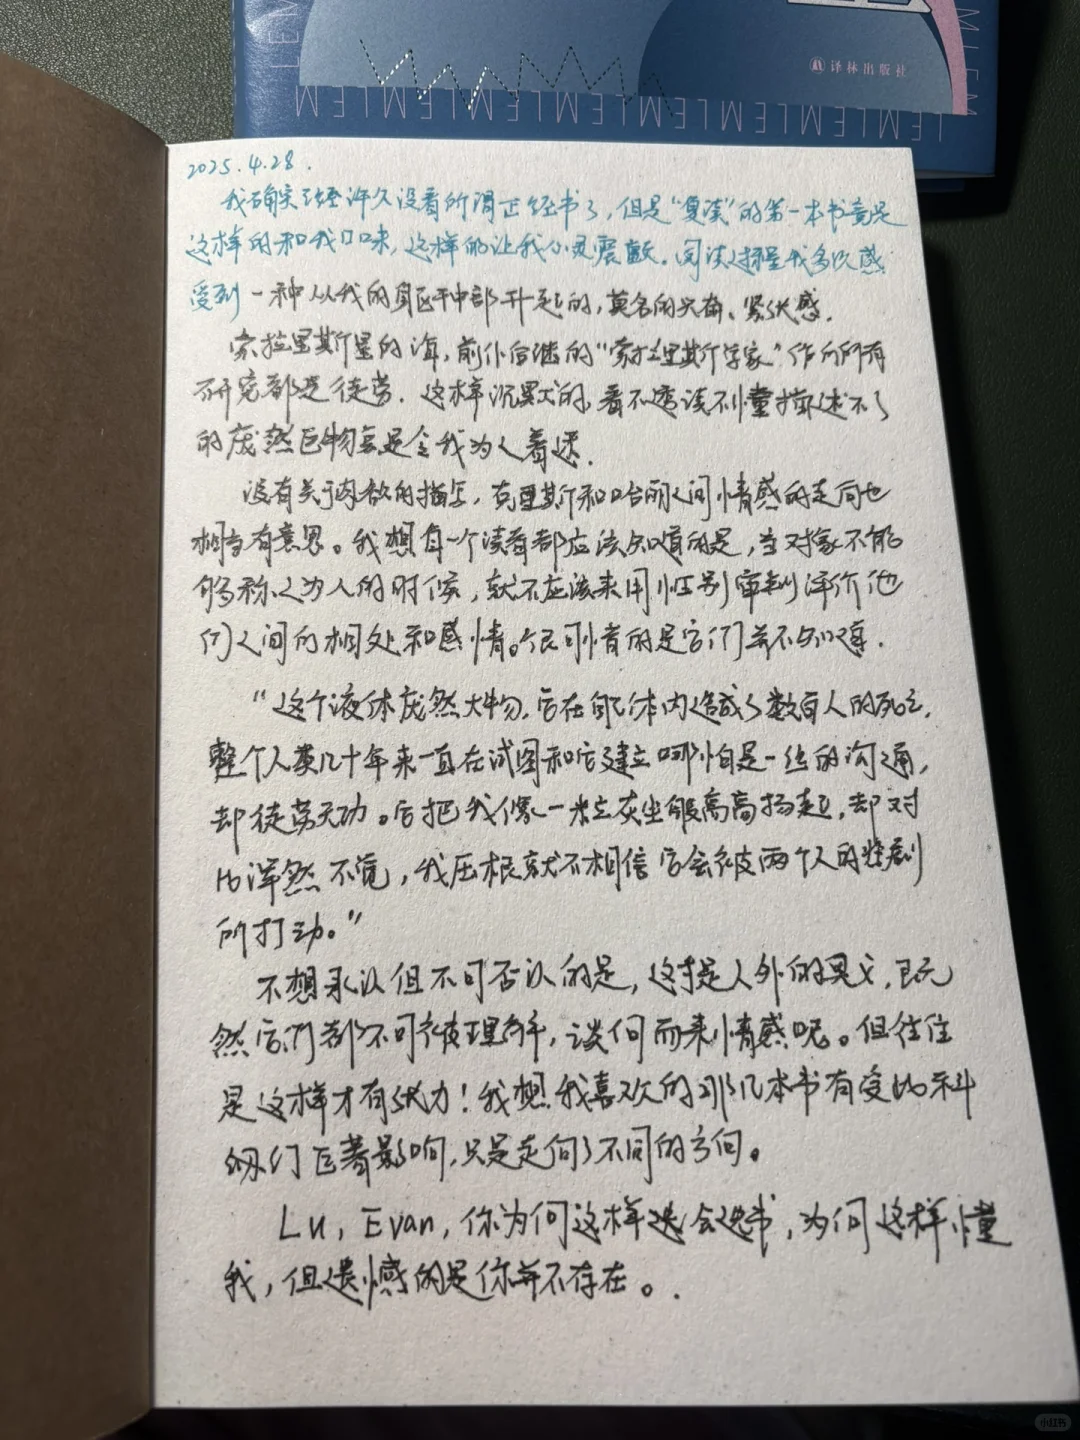 译林出版社
LEM
LEMLEMLEMLEMLEMLEMLEM
2025.4.28.
我确实已经许久没看所谓正经书了，但是“复读”的第一本书竟是
这样的和我口味，这样的让我心灵震颤。阅读过程我多次感
受到一种从我的躯干中部升起的，莫名的兴奋、紧张感.
索拉里斯星的海，前仆后继的“索拉里斯学家”作的所有
研究都是徒劳. 这样沉默的，看不透读不懂描述不了
的庞然巨物真是令我为之着迷.
没有关于肉欲的描写，克里斯和哈丽之间情感的走向也
相当有意思。我想每一个读者都应该知道的是，当对象不能
够称之为人的时候，就不应该来用性别审判评价他
们之间的相处和感情。很可惜的是它们并不知道.
“这个液体庞然大物，它在自己体内造成了数百人的死亡，
整个人类几十年来一直在试图和它建立哪怕是一丝的沟通，
却徒劳无功。它把我像一粒灰尘般高高扬起，却对
此浑然不觉，我压根就不相信它会被两个人的悲剧
所打动。”
不想承认但不可否认的是，这才是人外的奥义，既
然它们都不可被理解，谈何而来情感呢。但往往
是这样才有张力！我想我喜欢的那几本书有受此科
幻巨著影响，只是走向了不同的方向。
Lu，Evan，你为何这样选会选书，为何这样懂
我，但遗憾的是你并不存在。.
小红书